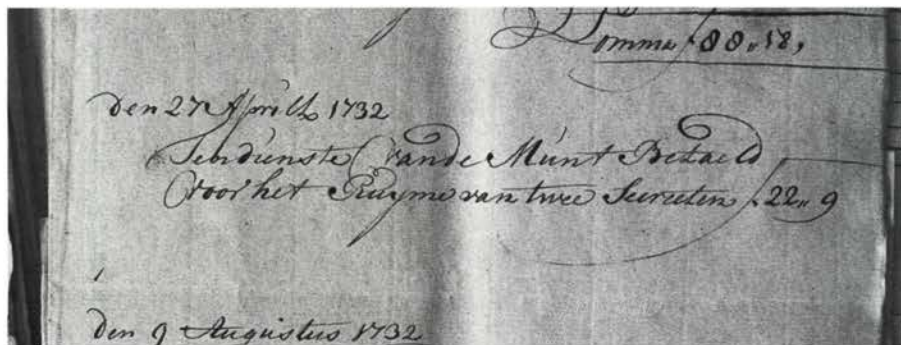 Somma f 88,, 18,
den 27 Aprill 1732
Tendienste vande Munt Betaeld
voor het Ruyme van twee Secreeten f. 22,, 9
den 9 Augustus 1732